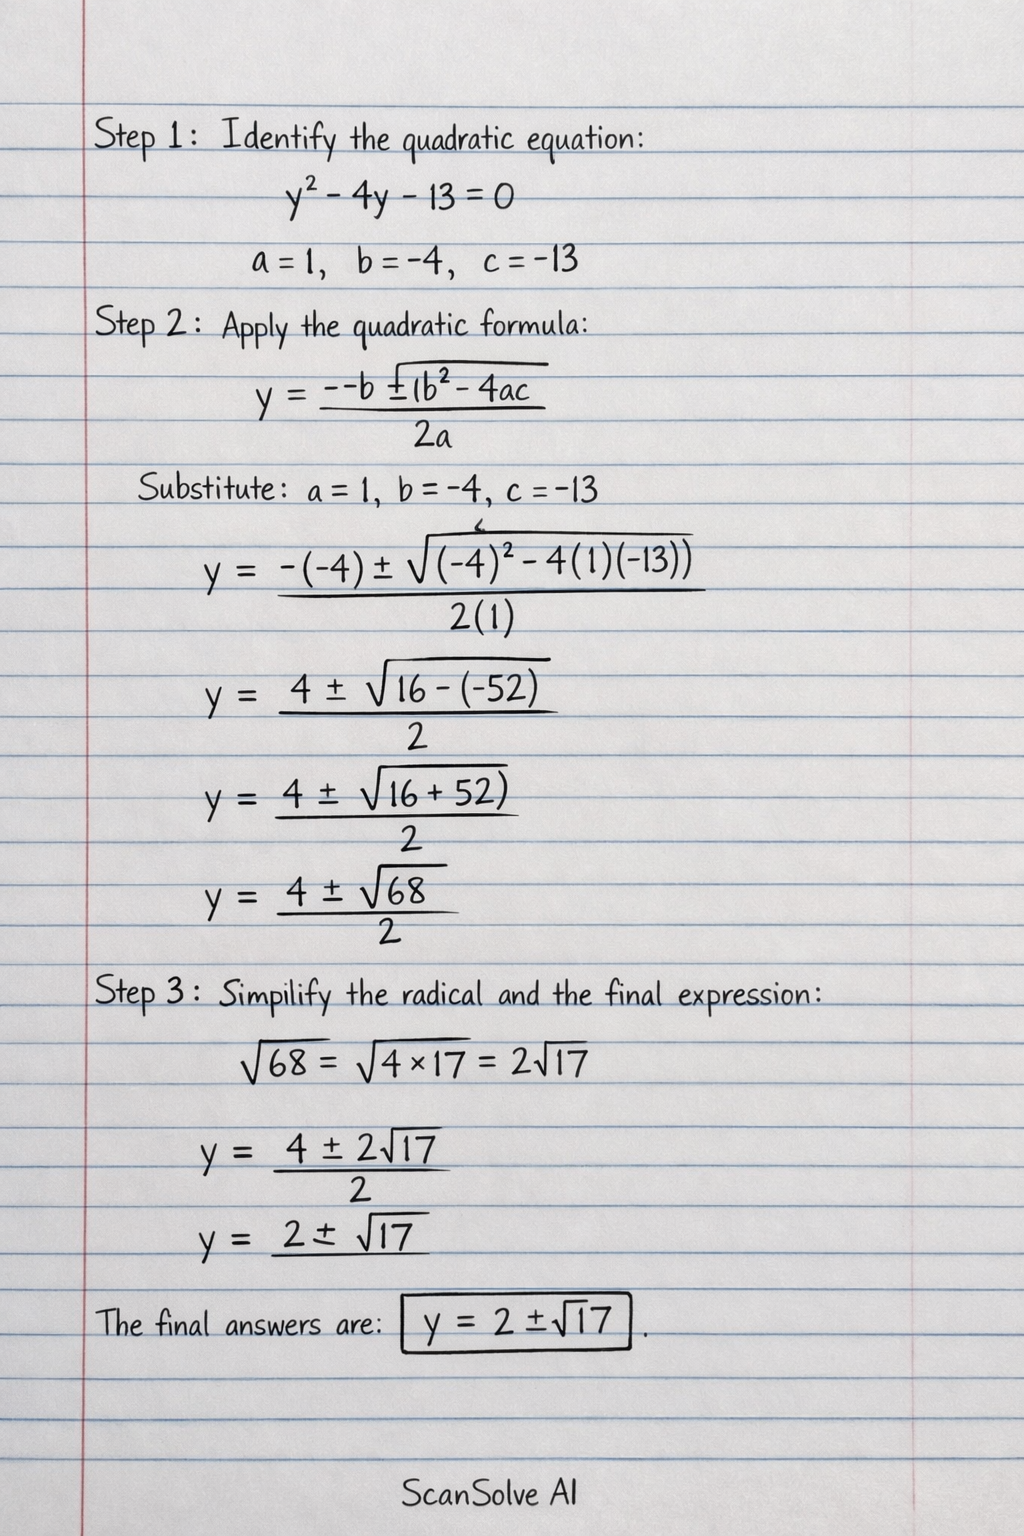 Step 1: Identify the quadratic equation:
y² - 4y - 13 = 0
a = 1, b = -4, c = -13
Step 2: Apply the quadratic formula:
y = --b ± (b² - 4ac
2a
Substitute: a = 1, b = -4, c = -13
y = -(-4) ± √(-4)² - 4(1)(-13))
2(1)
y = 4 ± √16 - (-52)
2
y = 4 ± √16 + 52)
2
y = 4 ± √68
2
Step 3: Simpilify the radical and the final expression:
√68 = √4 × 17 = 2√17
y = 4 ± 2√17
2
y = 2 ± √17
The final answers are: y = 2 ± √17 .
ScanSolve AI